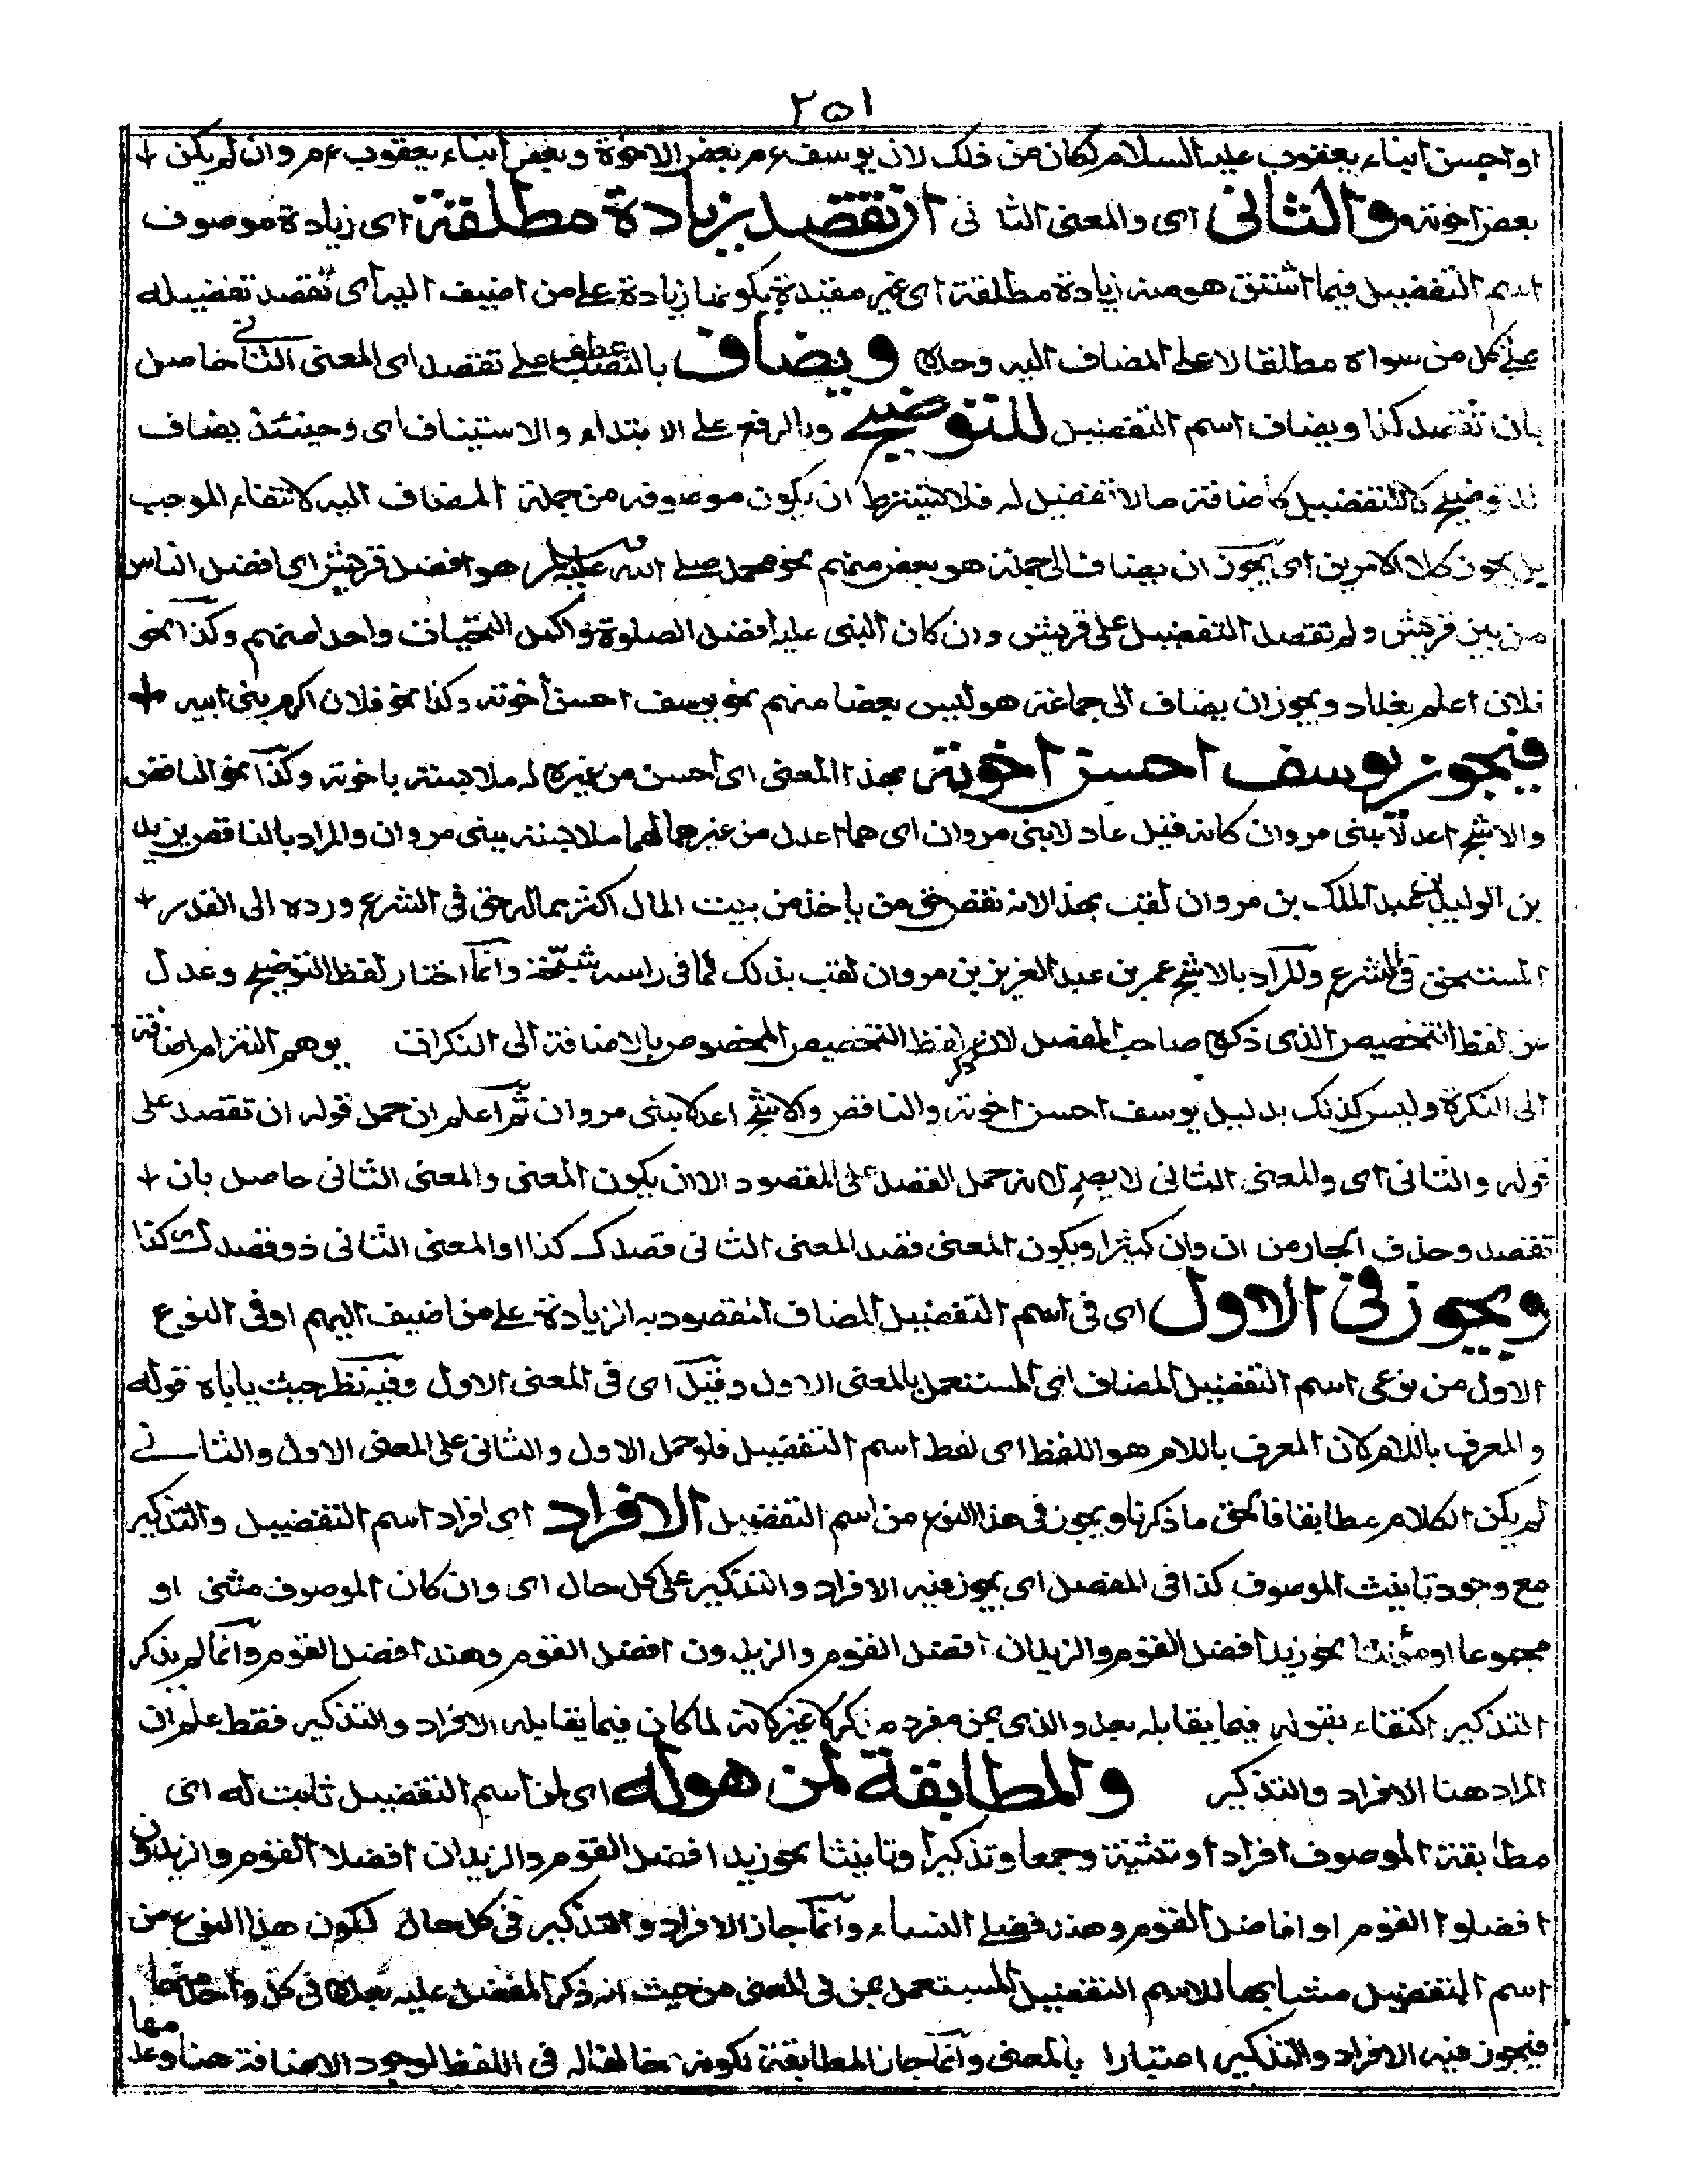 ٢٥١
او احسن ابناء يعقوب عليه السلام لكان من ذلك لان يوسف ع م بعض الاخوة وبعض ابناء يعقوب ع م وان لم يكن
بعض اخوته والثانى اى والمعنى الثانى ان تقصد زيادة مطلقة اى زيادة موصوف
اسم التفضيل فيما اشتق هو منه زيادة مطلقة اى غير مقيدة بكونها زيادة على من اضيف اليه اى تقصد تفضيله
على كل من سواه مطلقا لا على المضاف اليه وحده ويضاف بالنصب عطف على تقصد اى المعنى الثانى حاصل
بان تقصد كذا ويضاف اسم التفضيل للتوضيح وبالرفع على الابتداء والاستيناف اى وحينئذ يضاف
للتوضيح كالتفضيل كاضافة مالا تفضيل له فلا يشترط ان يكون موصوفه من جملة المضاف اليه لانتفاء الموجب
بل يجوز كلا الامرين اى يجوز ان يضاف الى جملة هو بعض منهم نحو محمد صلى الله عليه وسلم هو افضل قريش اى افضل الناس
من بين قريش ولم تقصد التفضيل على قريش وان كان النبى عليه افضل الصلوة واكمل التحيات واحدا منهم وكذا نحو
فلان اعلم بغداد ويجوز ان يضاف الى جماعة هو ليس بعضا منهم نحو يوسف احسن اخوته وكذا نحو فلان اكرم بنى ابيه
فيجوز يوسف احسن اخوته بهذا المعنى اى احسن من غيره له ملابسة باخوته وكذا نحو الناقص
والاشج اعدلا بنى مروان كانه قيل عادلا بنى مروان اى هما اعدل من غيرهما لهما ملابسة ببنى مروان والمراد بالناقص يزيد
بن الوليد بن عبد الملك بن مروان لقب بهذا لانه نقص حق من ياخذ من بيت المال اكثر مما له حق فى الشرع ورده الى القدر
المستحق فى الشرع والمراد بالاشج عمر بن عبد العزيز بن مروان لقب بذلك لما فى راسه شجة وانما اختار لفظ التوضيح وعدل
عن لفظ التخصيص الذى ذكره صاحب المفصل لان ذكر لفظ التخصيص المخصوص بالاضافة الى النكرات يوهم التزام اضافته
الى النكرة وليس كذلك بدليل يوسف احسن اخوته والناقص والاشج اعدلا بنى مروان ثم اعلم ان حمل قوله ان تقصد على
قوله والثانى اى والمعنى الثانى لا يصح لانه حمل القصد على المقصود الا ان يكون المعنى والمعنى الثانى حاصل بان
تقصد وحذف الجار من ان وان كثيرا ويكون المعنى قصد المعنى الثانى قصدك كذا او المعنى الثانى ذو قصدك كذا
ويجوز فى الاول اى فى اسم التفضيل المضاف المقصود به الزيادة على من اضيف اليهم او فى النوع
الاول من نوعى اسم التفضيل المضاف اى المستعمل بالمعنى الاول وقيل اى فى المعنى الاول وفيه نظر حيث ياباه قوله
والمعرف باللام لان المعرف باللام هو اللفظ اى لفظ اسم التفضيل فلو حمل الاول والثانى على المعنى الاول والثانى
لم يكن الكلام مطابقا فالحق ما ذكرنا ويجوز فى هذا النوع من اسم التفضيل الافراد اى افراد اسم التفضيل والتذكير
مع وجود تانيث الموصوف كذا فى المفصل اى يجوز فيه الافراد والتذكير على كل حال اى وان كان الموصوف مثنى او
مجموعا او مؤنثا نحو زيد افضل القوم والزيدان افضل القوم والزيدون افضل القوم وهند افضل القوم وانما لم يذكر
التذكير اكتفاء بقوله فيما يقابله بعد والذى بمن مفرد مذكر لا غير لانه لما كان فيما يقابله الافراد والتذكير فقط علم ان
المراد هنا الافراد والتذكير والمطابقة لمن هو له اى لمن اسم التفضيل ثابت له اى
مطابقة الموصوف افرادا وتثنية وجمعا وتذكيرا وتانيثا نحو زيد افضل القوم والزيدان افضلا القوم والزيدون
افضلوا القوم او افاضل القوم وهند فضلى النساء وانما جاز الافراد والتذكير فى كل حال لكون هذا النوع من
اسم التفضيل مشابها للاسم التفضيل المستعمل بمن فى المعنى من حيث انه ذكر المفضل عليه بعده فى كل واحد منهما
فيجوز فيه الافراد والتذكير اعتبارا بالمعنى وانما جاز المطابقة لكونه مخالفا له فى اللفظ لوجود الاضافة هنا وعدمها